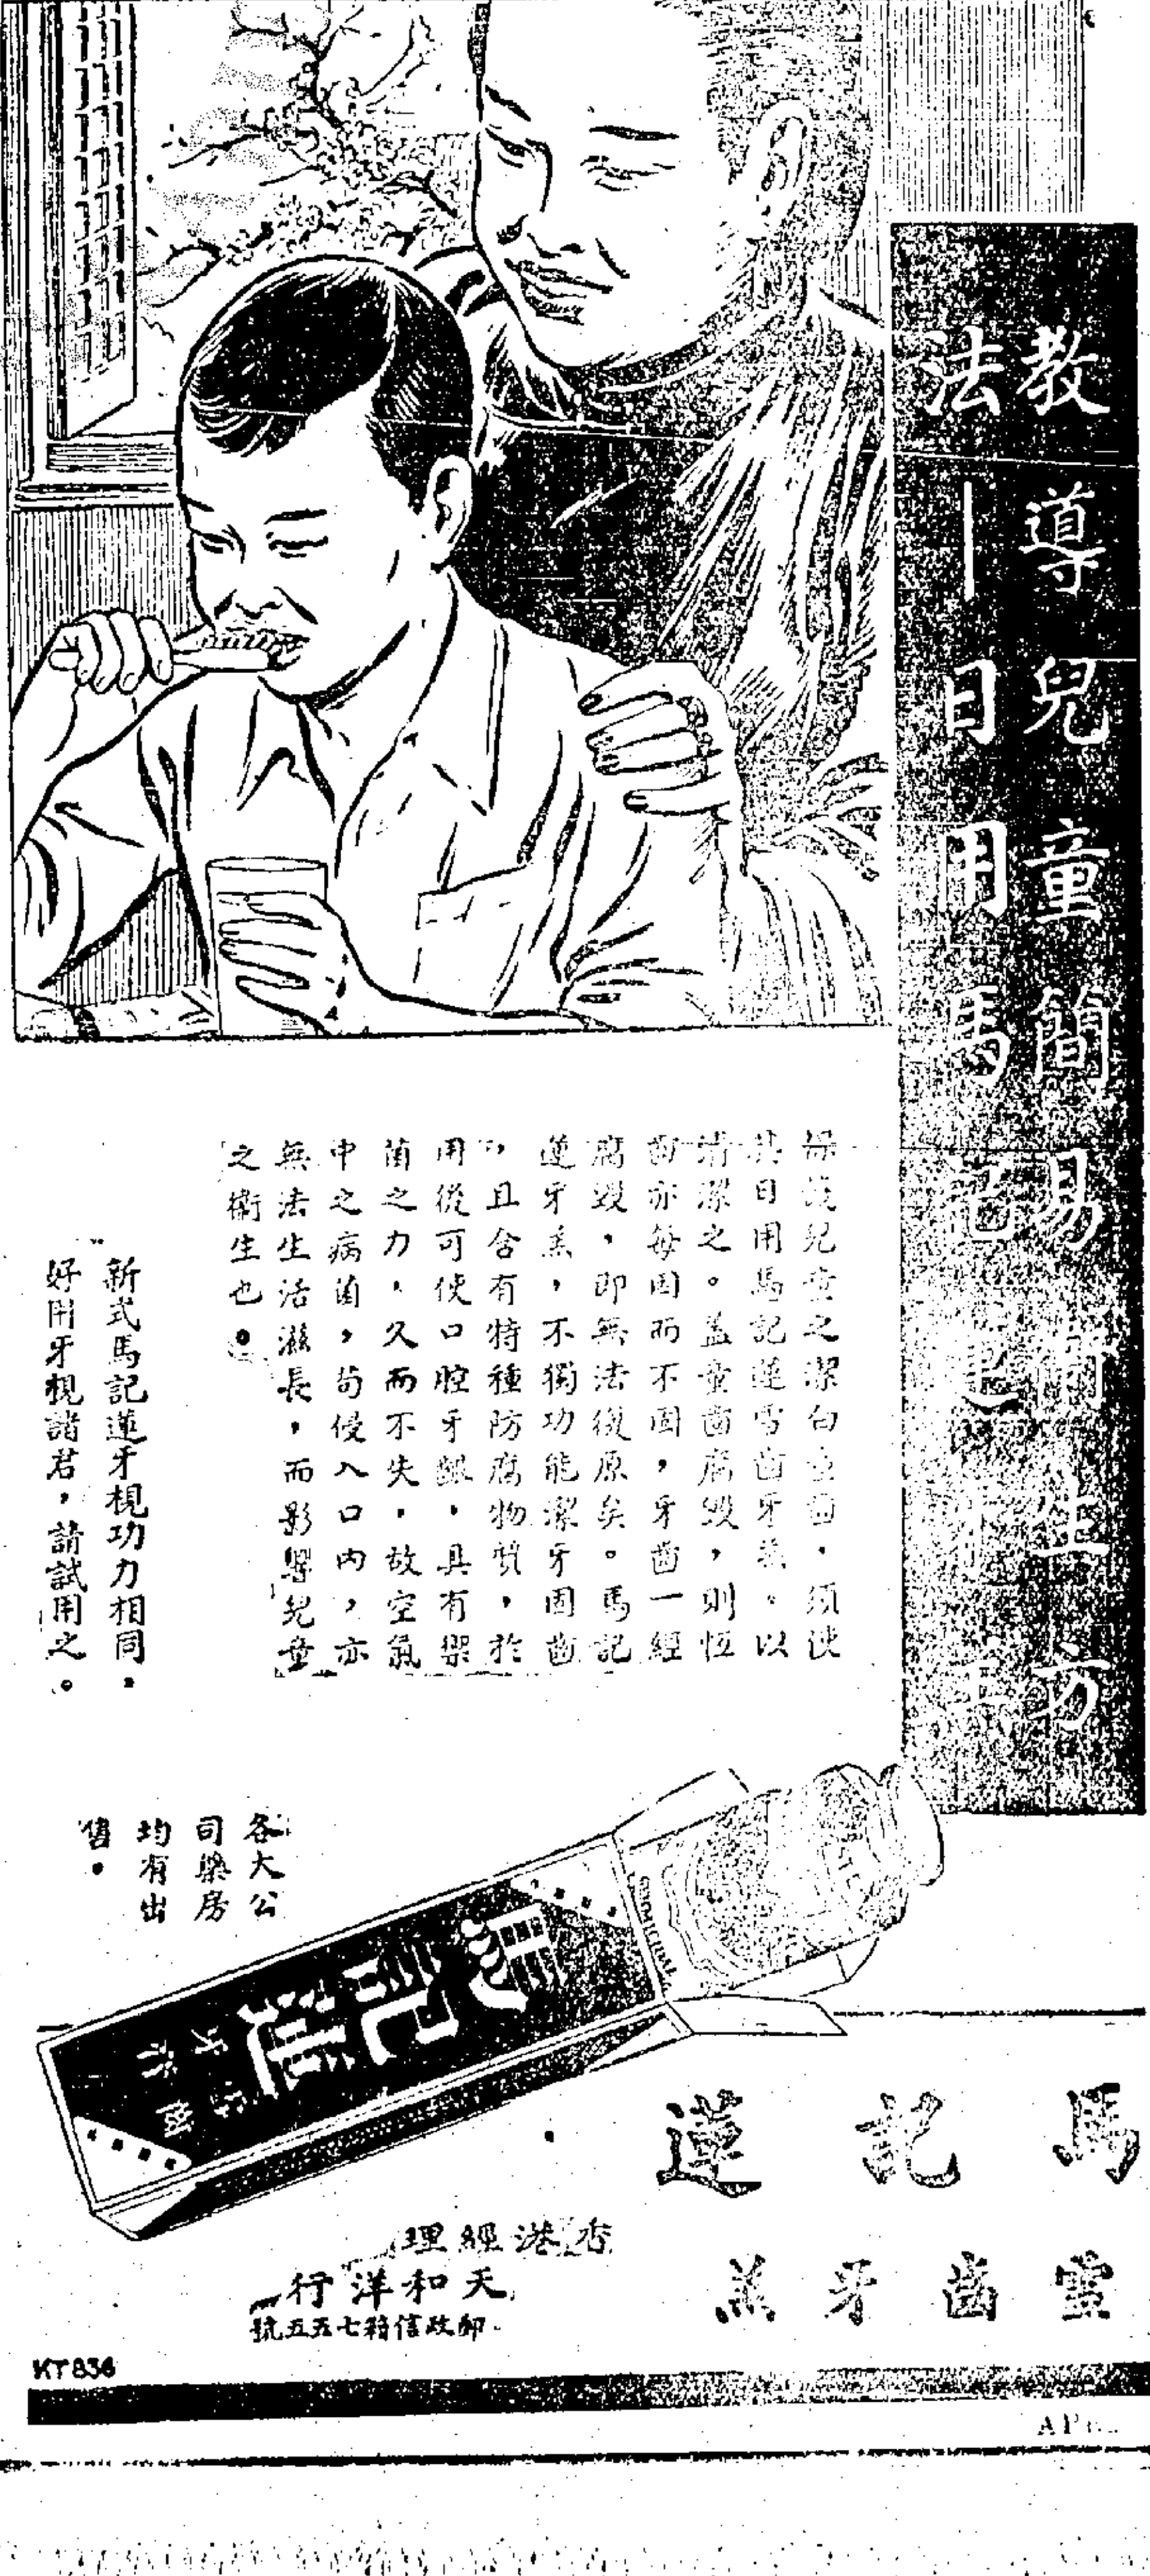 教導兒童簡易衛生方
法—日用馬記
兒童之潔白齒,須使
其日用馬記蓮靈齒牙羔。以
清潔之。蓋童齒腐毀,則恆
齒亦每因而不固,牙齒一經
腐毀,即無法復原矣。馬記
蓮牙羔,不獨功能潔牙固齒
,且含有特種防腐物質,於
用後可使口腔牙齦,具有禦
菌之力,久而不失,故空氣
中之病菌,苟侵入口內,亦
無法生活滋長,而影響兒童
之衛生也。
新式馬記蓮牙梘功力相同,
好用牙梘諸君,請試用之。
各大公
司藥房
均有出
售。
馬記蓮
馬記蓮
靈齒牙羔
香港經理
天和洋行
郵政信箱七五五號
KT836